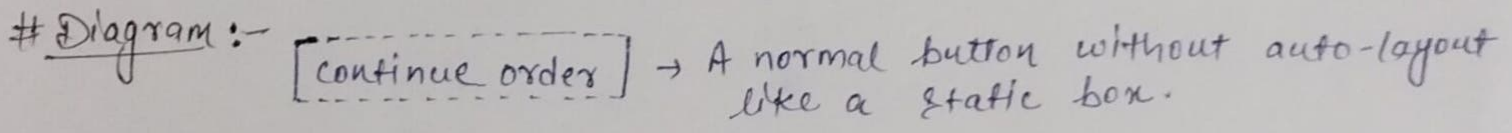 # Diagram :-
continue order → A normal button without auto-layout
like a static box.